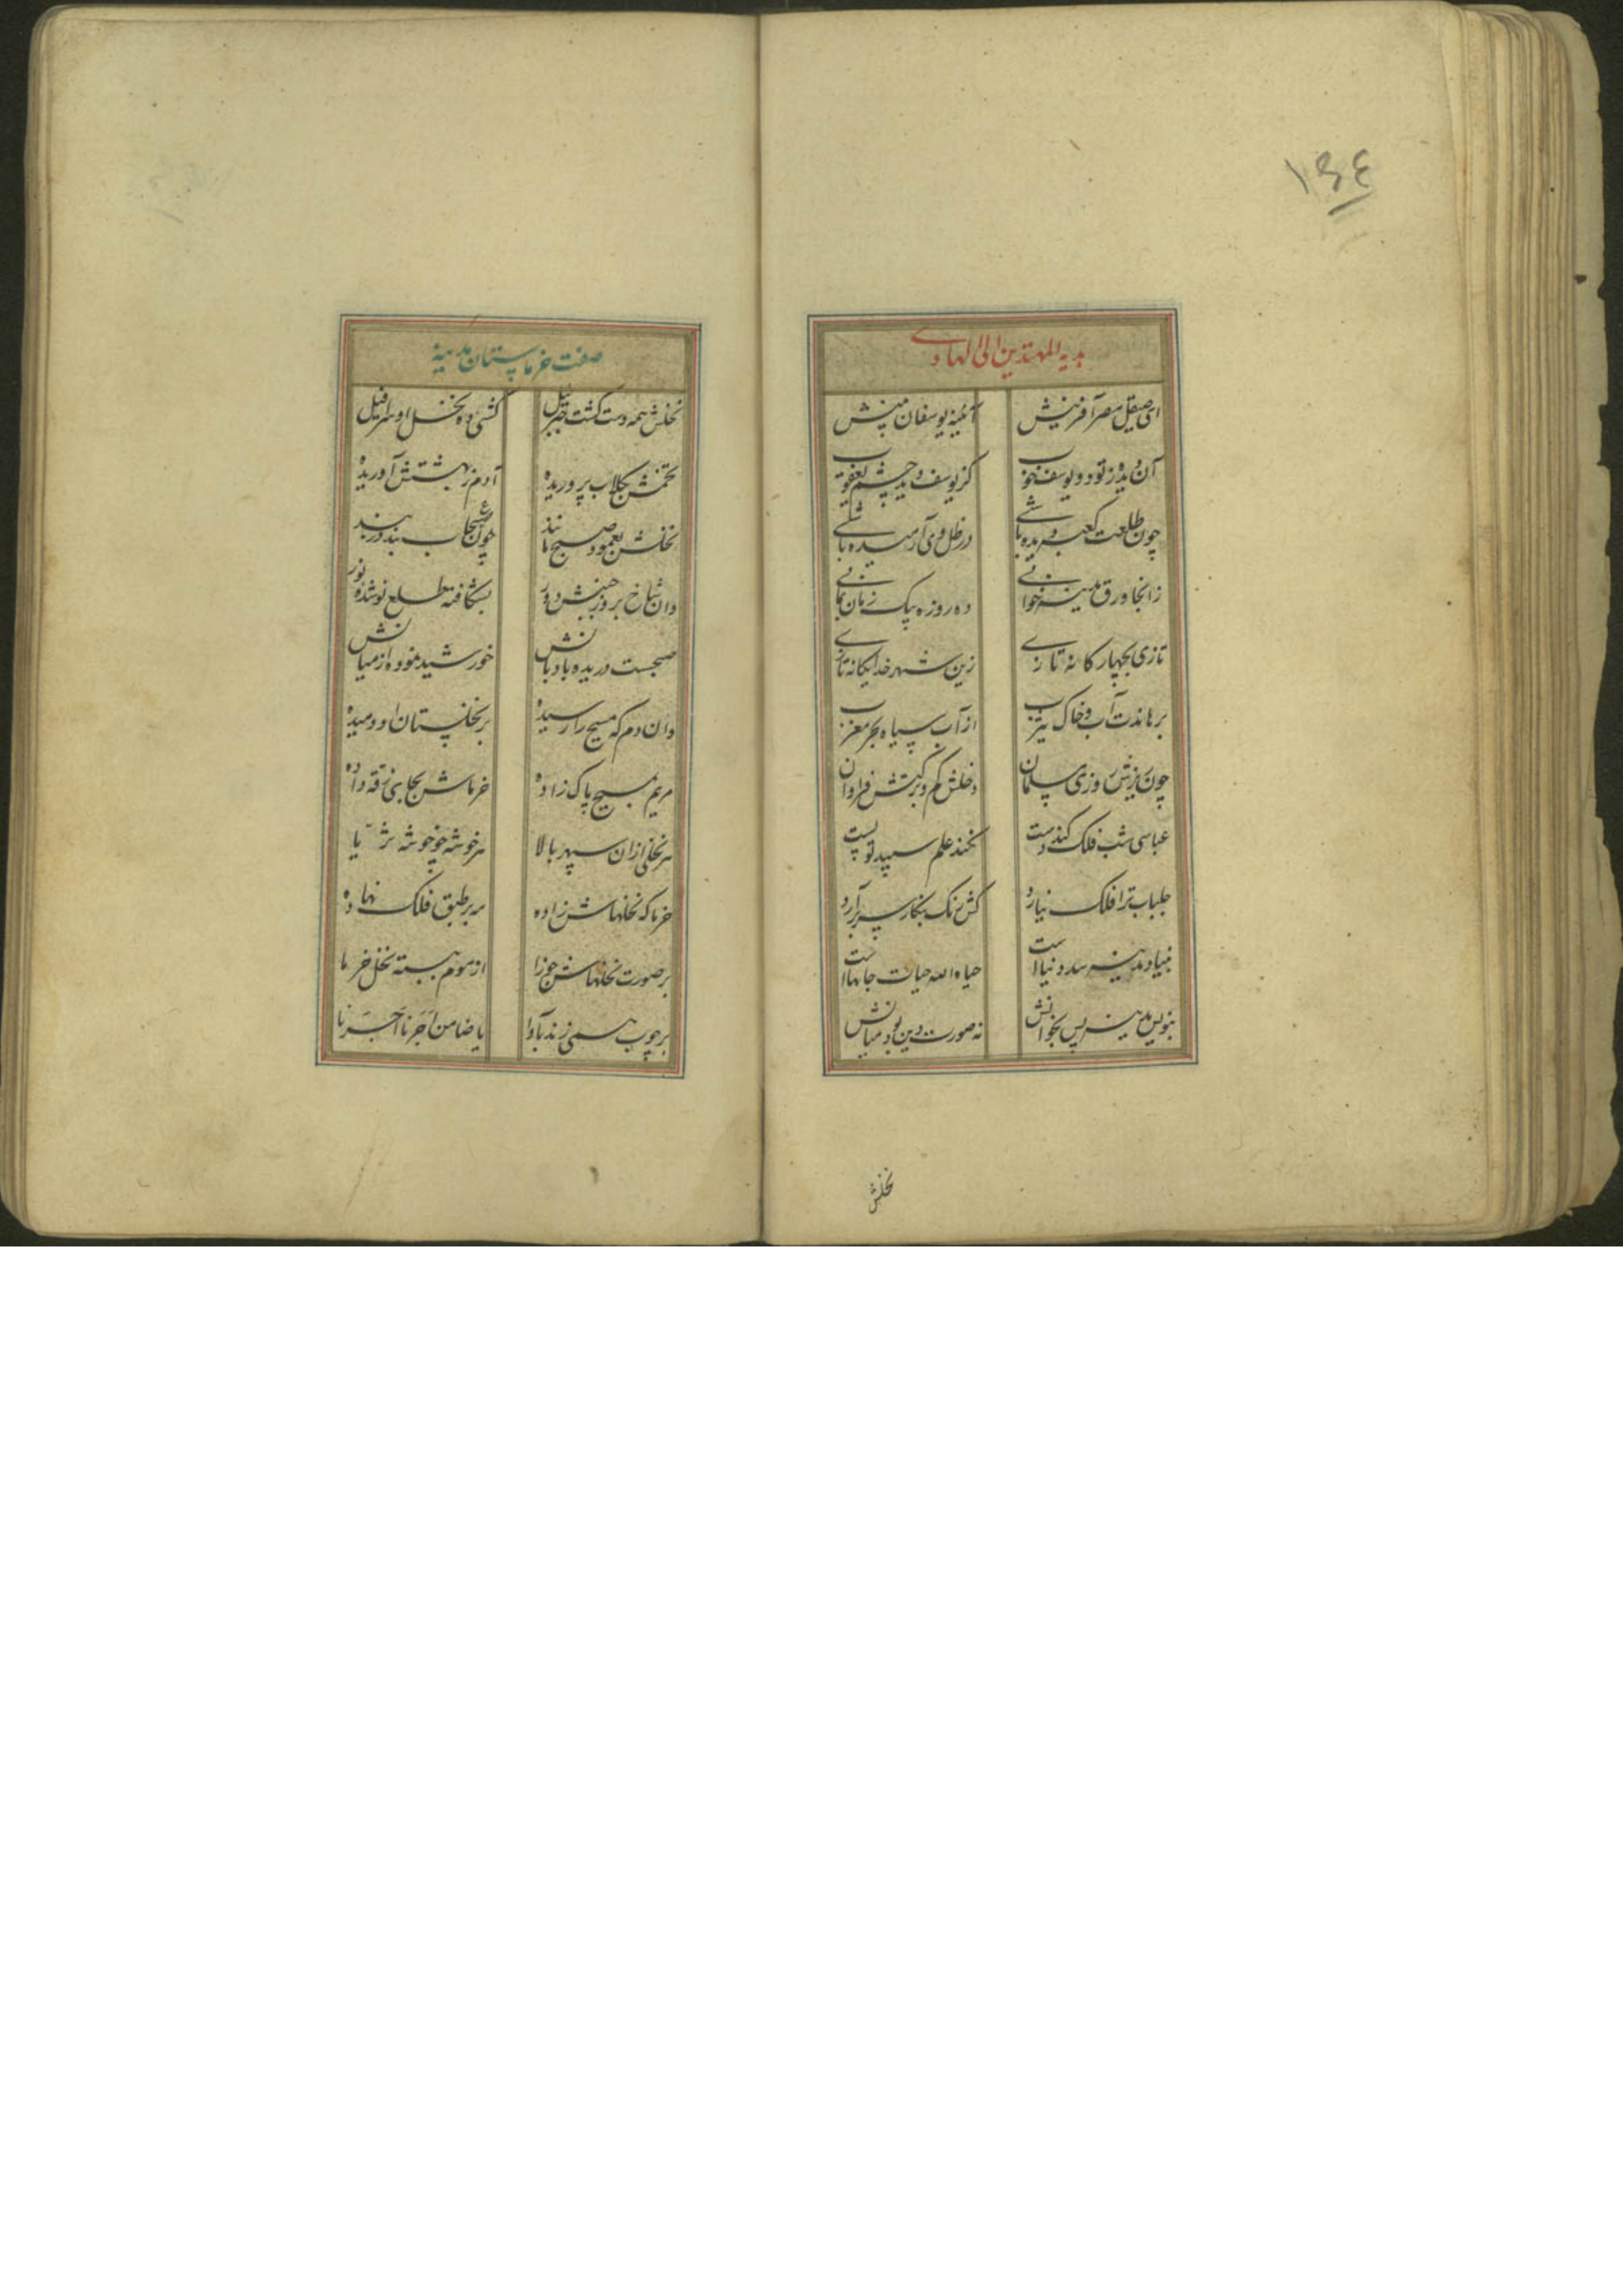 ١٤٤
هدیه المهتدین الی الهادی
ای صیقل مصر آفرینش آئینه یوسفان بینش
آن دیده ز تو و یوسف خوب کز یوسف دید چشم یعقوب
چون طلعت کعبه دیده باشی در ظل وی آرمیده باشی
زانجا ورق مدینه خوانی ده روزه بیک زمان بمانی
تازی بچهارکانه تازی زین شهر خدایکانه تازی
برهاندت آب و خاک یثرب از آب سیاه بحر مغرب
چون ریزش روزی سلیمان دخلش کم و برکتش فراوان
عباسی شب فلک کند دست نکند علم سپید تو پست
جلباب ترا فلک نیارد کش رنک بنکار سر برآرد
بنیاد مدینه سد دنیا است حیاه الله حیات جانها است
بنویس مدینه پس بخوانش نه صورت دین بود میانش
نخلش
صفت خرماستان مدینه
نخلش همه دست کشت جبریل کشی ده نخل او سرافیل
تخمش بجلاب پروریده آدم ز بهشتش آوریده
نخلش بعمود صبح مانند چون صبح بند در بند
وان شاخ بروز جنبش دور بشکافته طلع نو شده نور
صبحست دریده بادبانش خورشید نموده از میانش
وان دم که مسیح را رسیده بر نخلستان او دمیده
مریم مسیح پاک زاده خرماش بجای زقه داده
هر نخلی ازان سپهر بالا هر خوشه چو خوشه ثریا
خرما که نخلهاش زاده مه بر طبق فلک نهاده
بر صورت نخلهاش جوزا از موم ببسته نخل خرما
بر چوب همی زند آوا یا ضامن اجرنا اجرنا